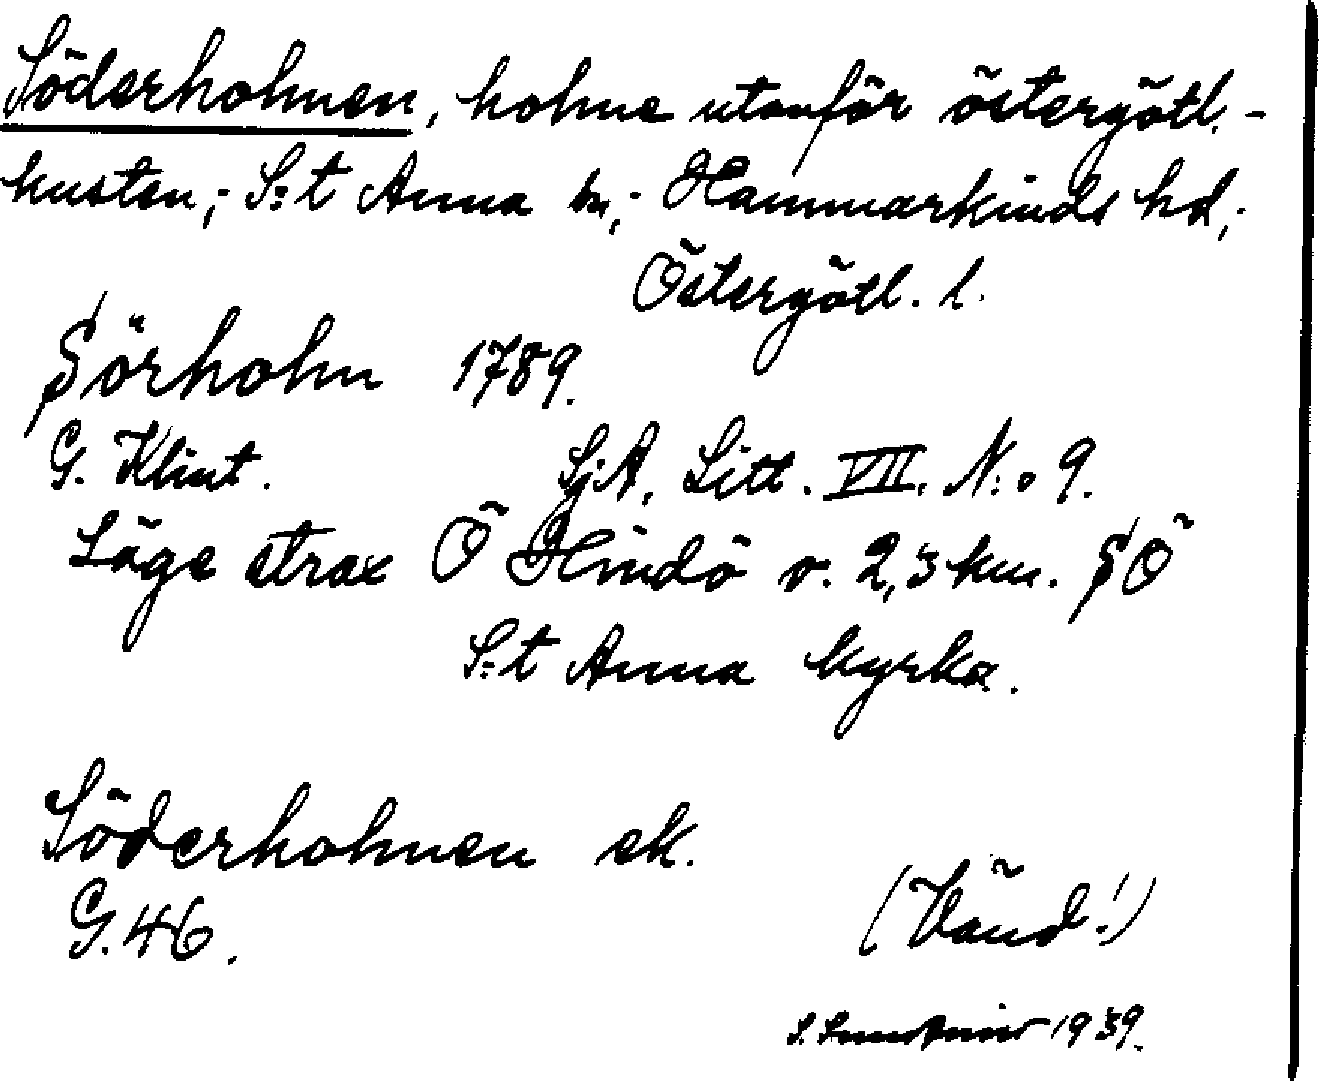 Söderholmen, holme utanför östergötl.-
kusten; S:t Anna sn; Hammarkinds hd;
Östergötl. l.
Sörholm 1789.
G. Klint. SjA. Litt. VII. N:o 9.
Läge strax Ö Hindö o. 2,3 km. SÖ
S:t Anna kyrka.
Söderholmen ek.
G. 46.
(Vänd!)
S. 1939.